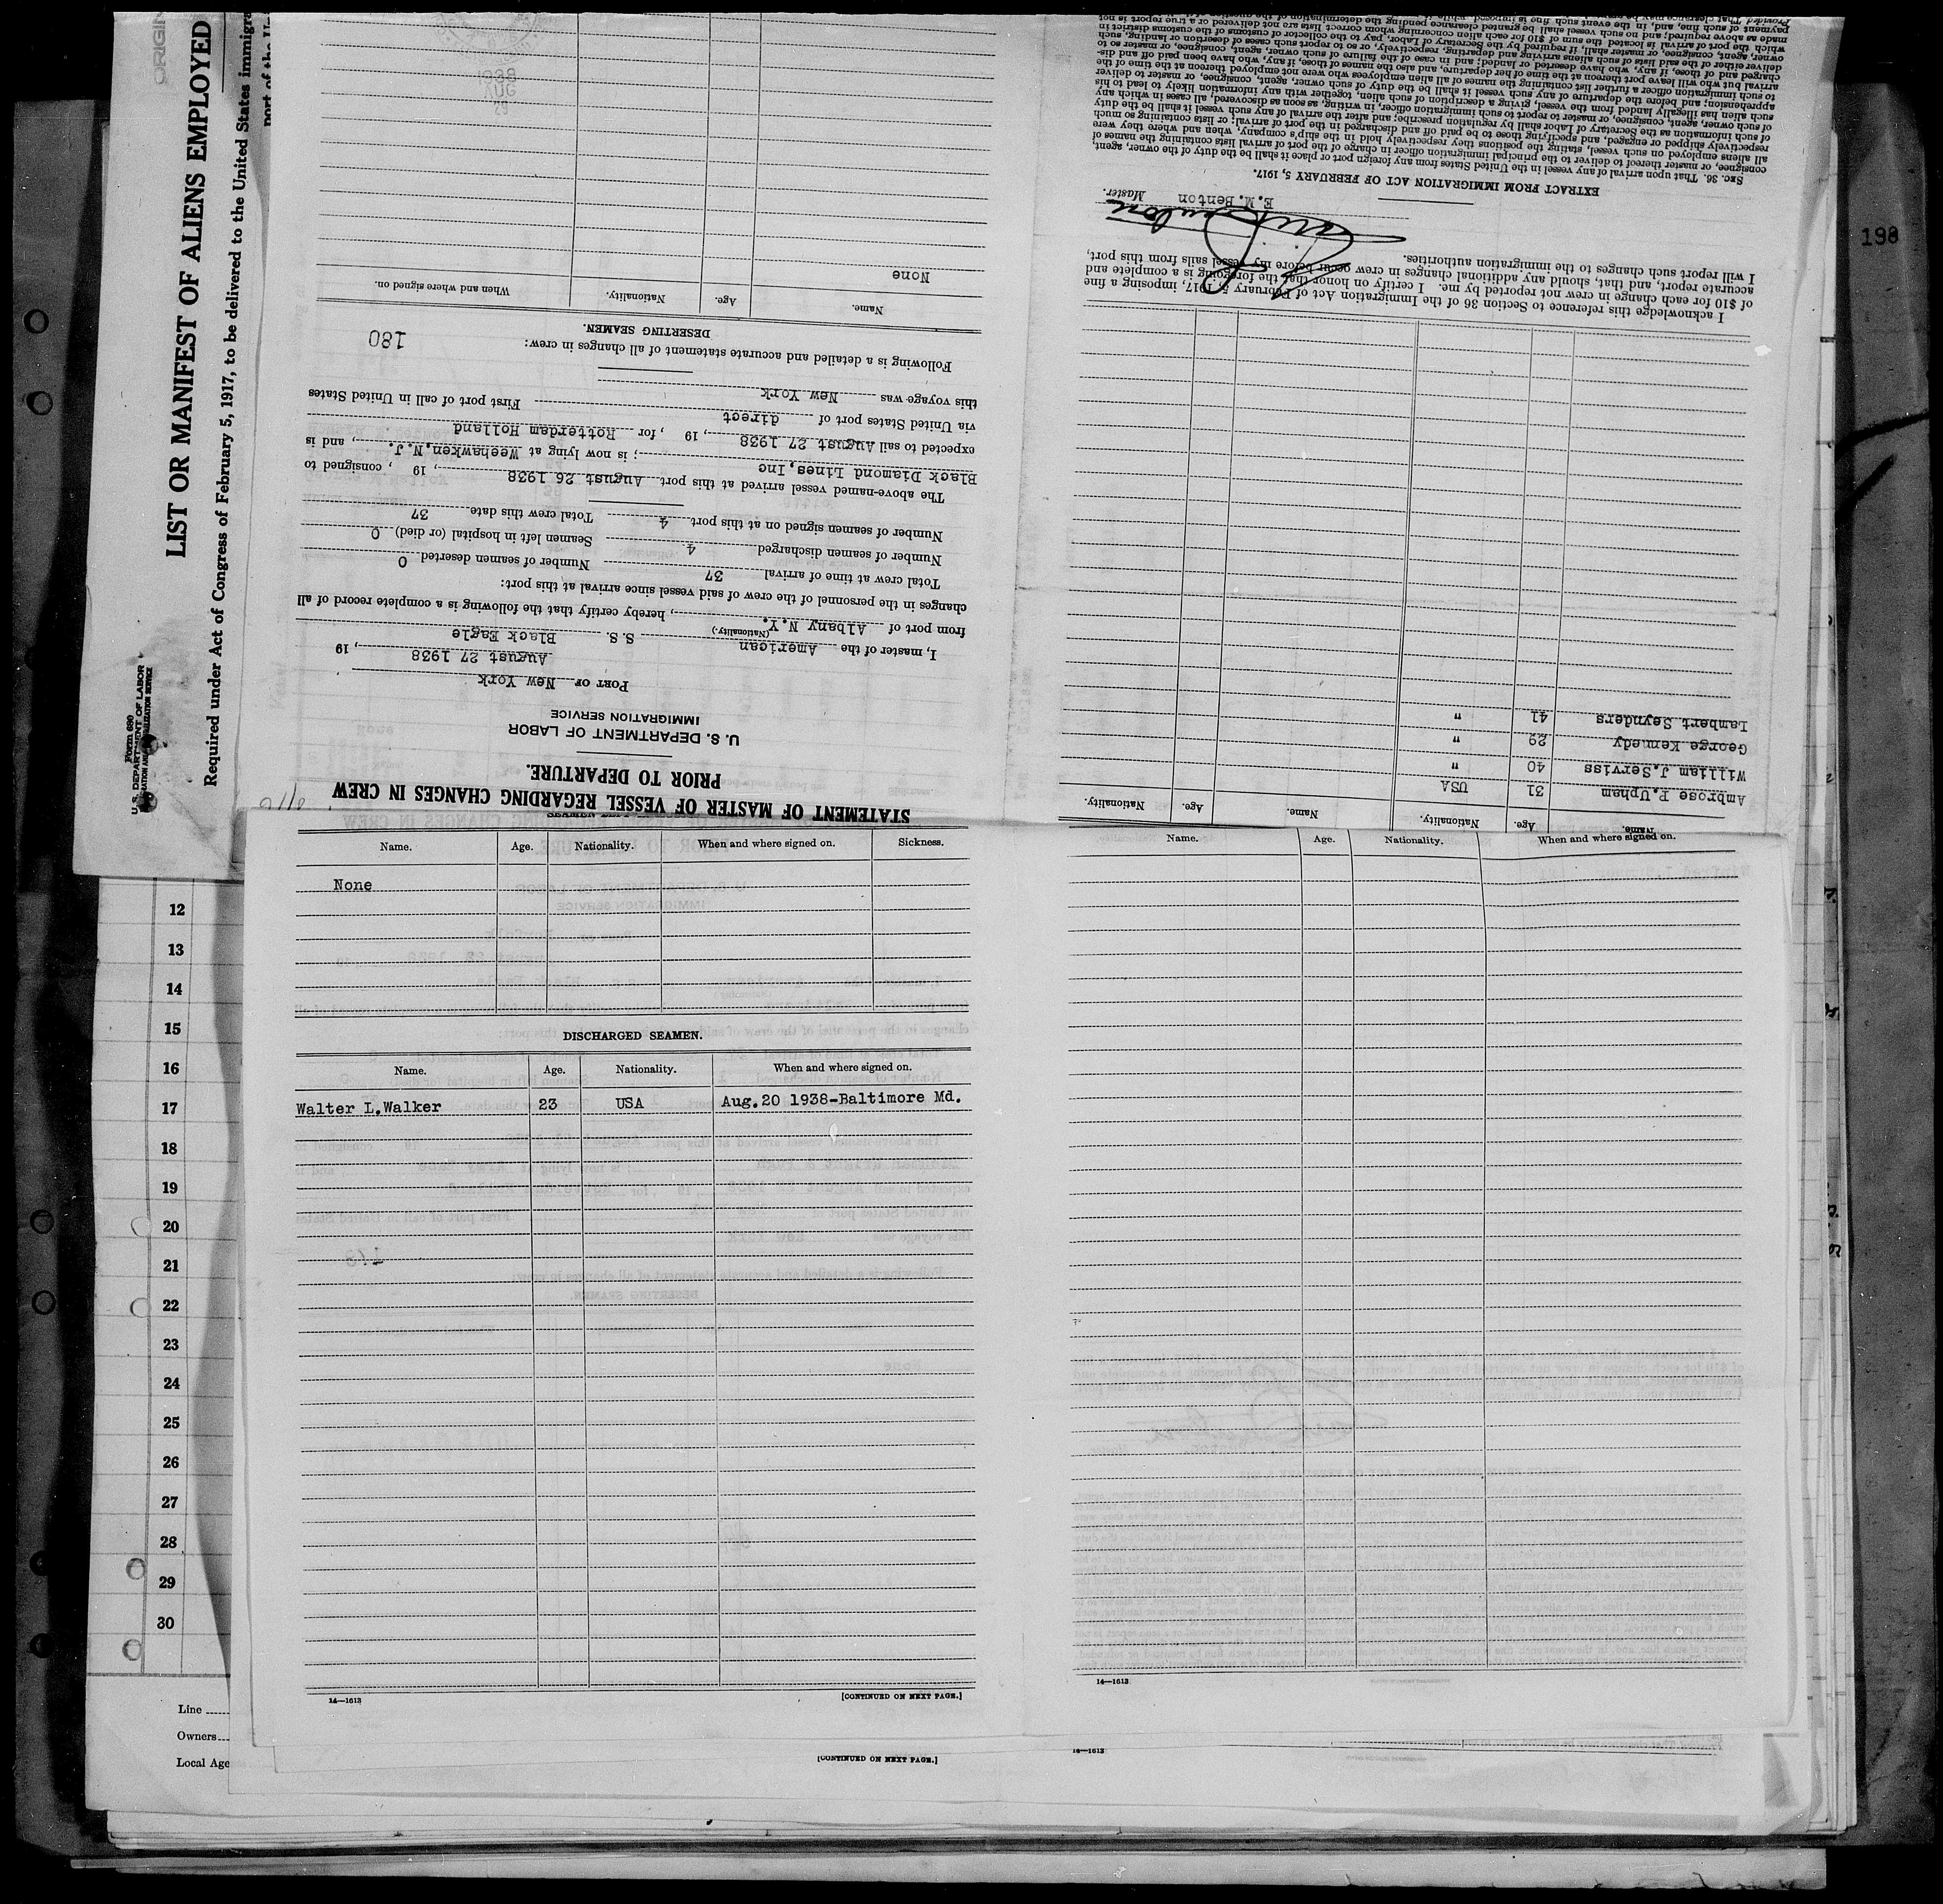 ORIGIN
LIST OR MANIFEST OF ALIENS EMPLOYED
Required under Act of Congress of February 5, 1917, to be delivered to the United States immigra
port of the U
Form 680
U. S. DEPARTMENT OF LABOR
IMMIGRATION AND NATURALIZATION SERVICE
198
STATEMENT OF MASTER OF VESSEL REGARDING CHANGES IN CREW
PRIOR TO DEPARTURE.
U. S. DEPARTMENT OF LABOR
IMMIGRATION SERVICE
PORT OF New York
August 27 1938, 19
I, master of the American S. S. Black Eagle
(Nationality.)
from port of Albany N.Y., hereby certify that the following is a complete record of all
changes in the personnel of the crew of said vessel since arrival at this port:
Total crew at time of arrival 37 Number of seamen deserted 0
Number of seamen discharged 4 Seamen left in hospital (or died) 0
Number of seamen signed on at this port 4 Total crew this date 37
The above-named vessel arrived at this port August 26 1938, 19 , consigned to
Black Diamond Lines, Inc ; is now lying at Weehawken, N.J. , and is
expected to sail August 27 1938 , 19 , for Rotterdam Holland
via United States port of direct First port of call in United States
this voyage was New York
Following is a detailed and accurate statement of all changes in crew:
180
DESERTING SEAMEN.
Name. Age. Nationality. When and where signed on.
None
1938
AUG
29
Name. Age. Nationality. Name. Age. Nationality.
Ambrose P. Upham 31 USA
William J. Serviss 40 "
George Kennedy 29 "
Lambert Seynders 41 "
I acknowledge this reference to Section 36 of the Immigration Act of February 5, 1917, imposing a fine
of $10 for each change in crew not reported by me. I certify on honor that the foregoing is a complete and
accurate report, and that, should any additional changes in crew occur before my vessel sails from this port,
I will report such changes to the immigration authorities.
E. M. Benton Master.
EXTRACT FROM IMMIGRATION ACT OF FEBRUARY 5, 1917.
SEC. 36. That upon arrival of any vessel in the United States from any foreign port or place it shall be the duty of the owner, agent,
consignee, or master thereof to deliver to the principal immigration officer in charge of the port of arrival lists containing the names of
all aliens employed on such vessel, stating the positions they respectively hold in the ship's company, when and where they were
respectively shipped or engaged, and specifying those to be paid off and discharged in the port of arrival; or lists containing so much
of such information as the Secretary of Labor shall by regulation prescribe; and after the arrival of any such vessel it shall be the duty
of such owner, agent, consignee, or master to report to such immigration officer, in writing, as soon as discovered, all cases in which any
such alien has illegally landed from the vessel, giving a description of such alien, together with any information likely to lead to his
apprehension; and before the departure of any such vessel it shall be the duty of such owner, agent, consignee, or master to deliver
to such immigration officer a further list containing the names of all alien employees who were not employed thereon at the time of the
arrival but who will leave port thereon at the time of her departure, and also the names of those, if any, who have been paid off and dis-
charged and of those, if any, who have deserted or landed; and in case of the failure of such owner, agent, consignee, or master so to
deliver either of the said lists of such aliens arriving and departing, respectively, or so to report such cases of desertion or landing, such
owner, agent, consignee, or master shall, if required by the Secretary of Labor, pay to the collector of customs of the customs district in
which the port of arrival is located the sum of $10 for each alien concerning whom correct lists are not delivered or a true report is not
made as above required; and no such vessel shall be granted clearance pending the determination of the
payment of such fine, and, in the event such fine is imposed, while
Name. Age. Nationality. When and where signed on. Sickness.
None
DISCHARGED SEAMEN.
Name. Age. Nationality. When and where signed on.
Walter L.Walker 23 USA Aug.20 1938-Baltimore Md.
14—1613 [CONTINUED ON NEXT PAGE.]
Name. Age. Nationality. When and where signed on.
14—1613
12
13
14
15
16
17
18
19
20
21
22
23
24
25
26
27
28
29
30
Line
Owners
Local Age
[CONTINUED ON NEXT PAGE.]
14—1613